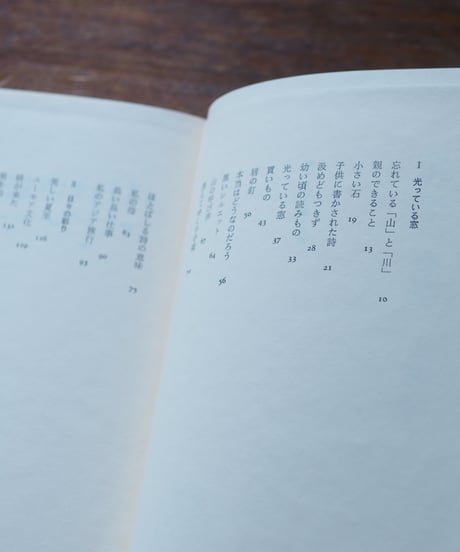 I 光っている窓
忘れている「山」と「川」 10
親のできること 13
小さい石 19
子供に書かされた詩 21
汲めどもつきず 28
幼い頃の読みもの 33
光っている窓 37
買いもの 43
唇の釘 50
本当はどうなのだろう 56
黒いシルエット 64
67
ほとばしる詩の意味 75
私の母 83
長い長い仕事 90
私のアジア旅行 93
II 日々の祈り
美しい夏至 116
ユーモア文化 129
131